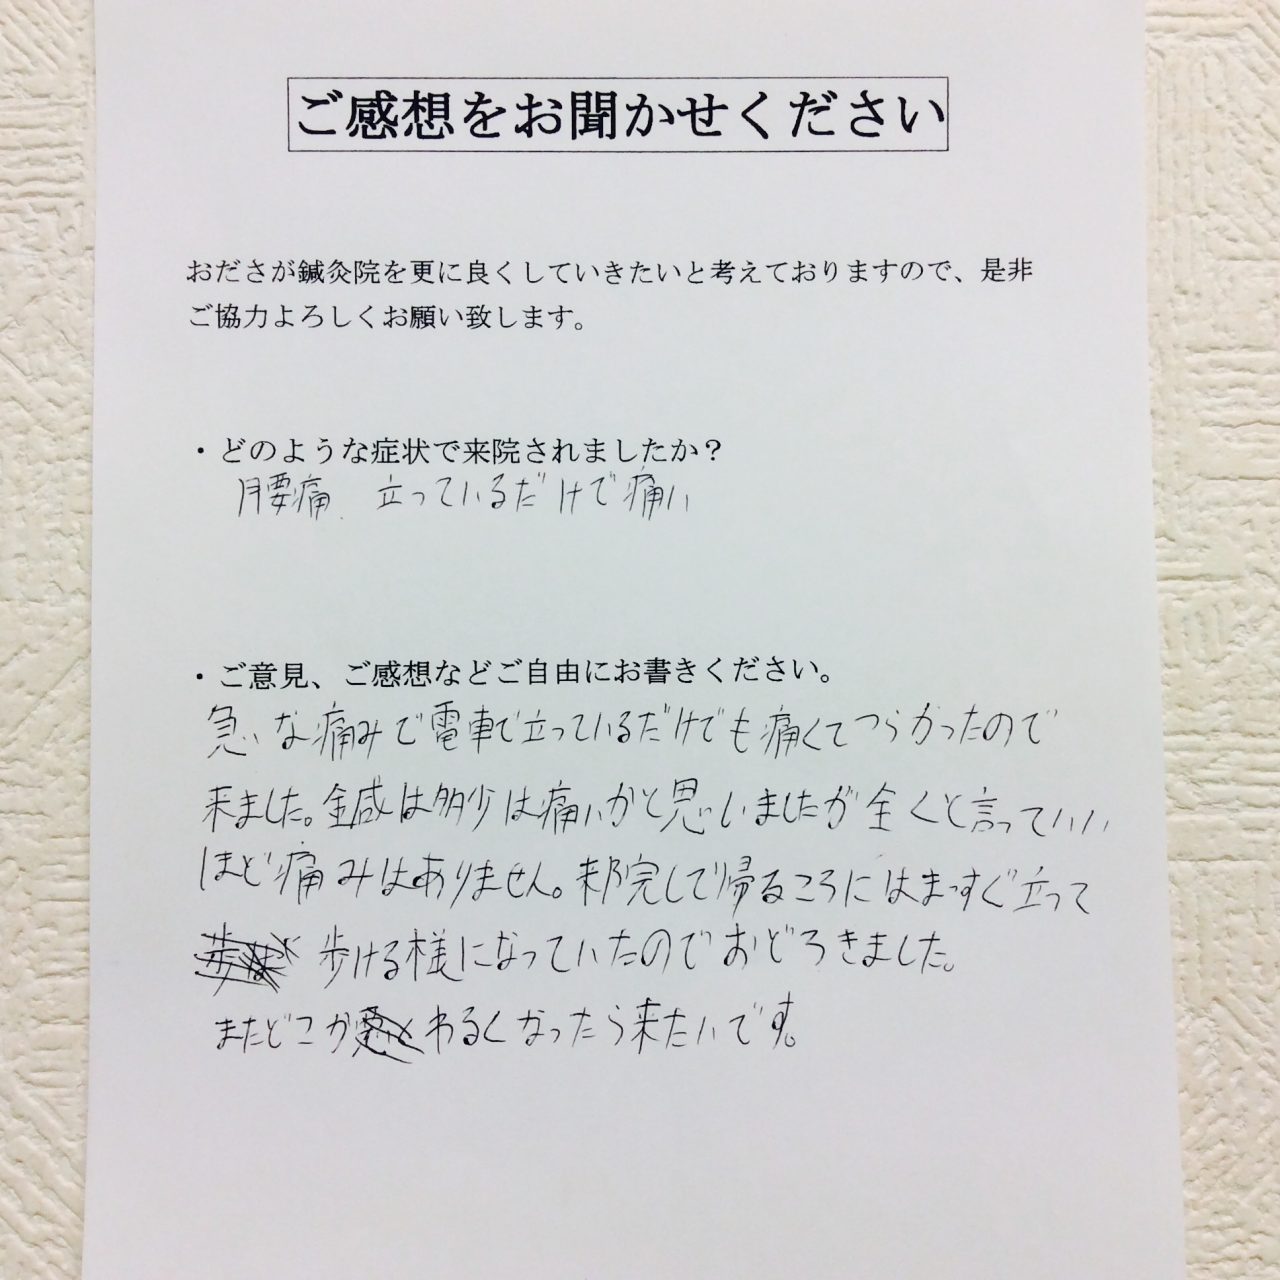 ご感想をお聞かせください
おださが鍼灸院を更に良くしていきたいと考えておりますので、是非
ご協力よろしくお願い致します。
・どのような症状で来院されましたか？
腰痛 立っているだけで痛い
・ご意見、ご感想などご自由にお書きください。
急な痛みで電車で立っているだけでも痛くてつらかったので
来ました。鍼は多少は痛いかと思いましたが全くと言っていい
ほど痛みはありません。来院して帰るころにはまっすぐ立って
歩ける様になっていたのでおどろきました。
またどこかわるくなったら来たいです。